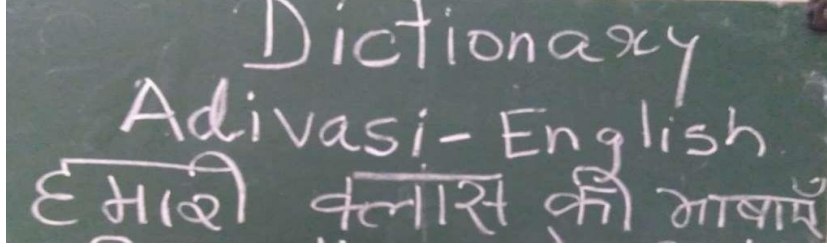 Dictionary
Adivasi-English
हमारी क्लास की भाषाएँ